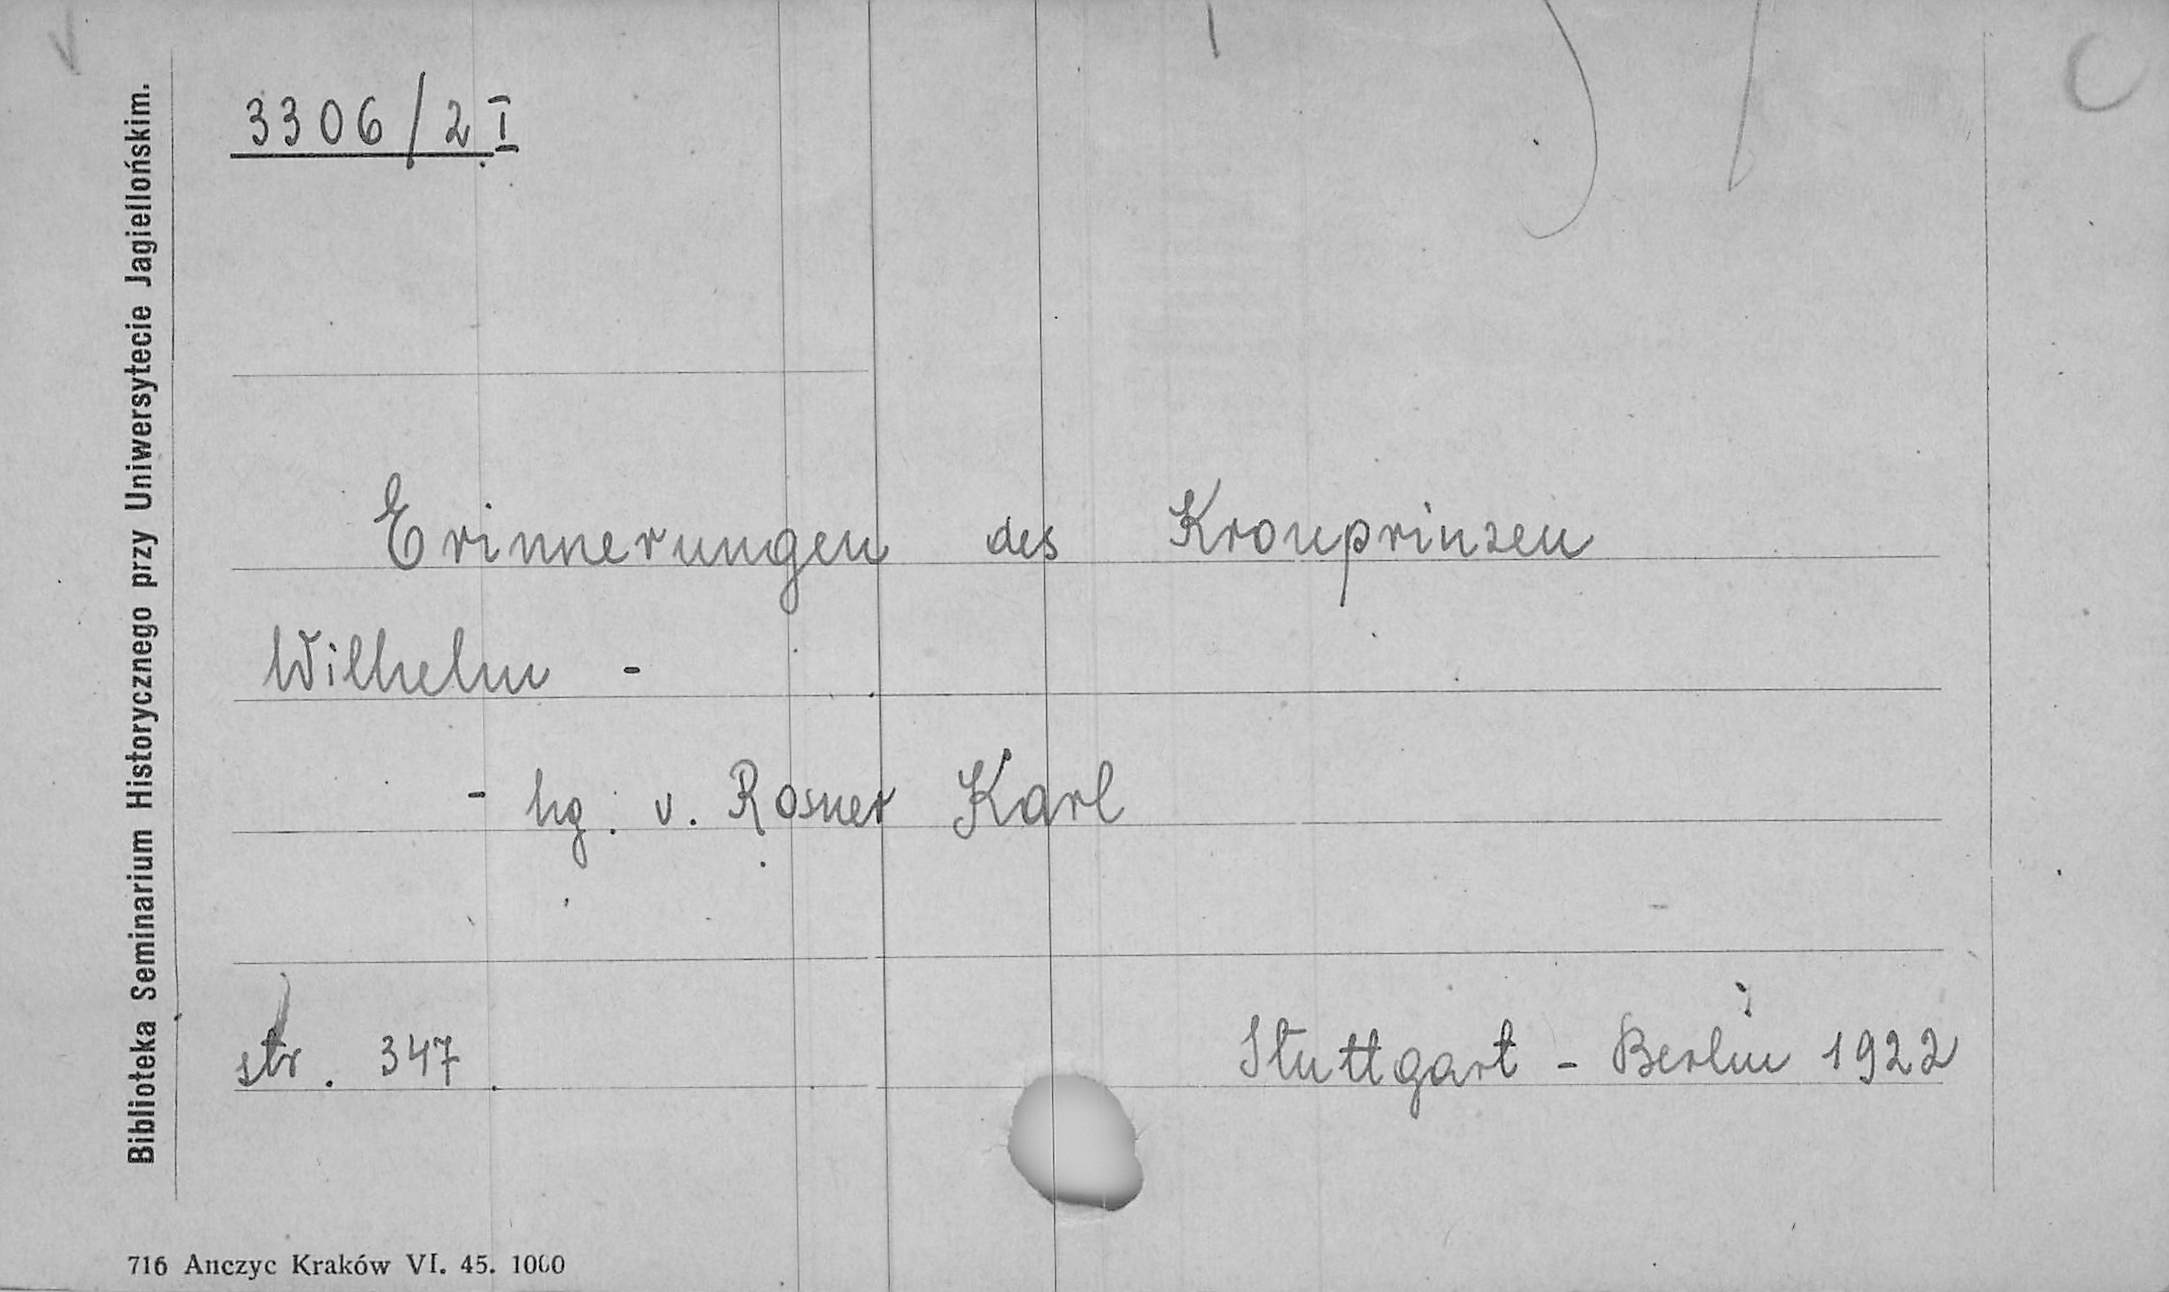 Biblioteka Seminarium Historycznego przy Uniwersytecie Jagiellońskim.
3306/2 I
Erinnerungen des Kronprinzen
Wilhelm -
- hg. v. Rosner Karl
str. 347.
Stuttgart - Berlin 1922
716 Anczyc Kraków VI. 45. 1000